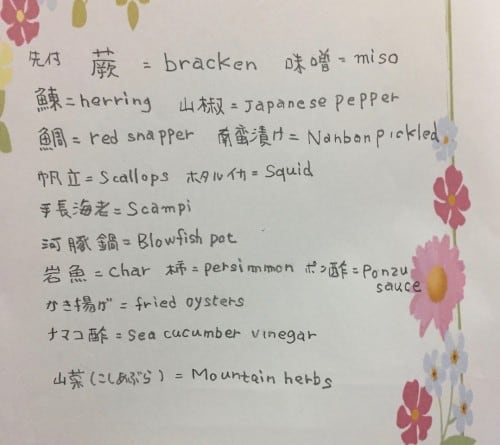 先付 蕨 = bracken 味噌 = miso
鰊 = herring 山椒 = Japanese pepper
鯛 = red snapper 南蛮漬け = Nanban pickled
帆立 = Scallops ホタルイカ = Squid
手長海老 = Scampi
河豚鍋 = Blowfish pot
岩魚 = char 柿 = persimmon ポン酢 = Ponzu
sauce
かき揚げ = fried oysters
ナマコ酢 = sea cucumber vinegar
山菜(こしあぶら) = Mountain herbs